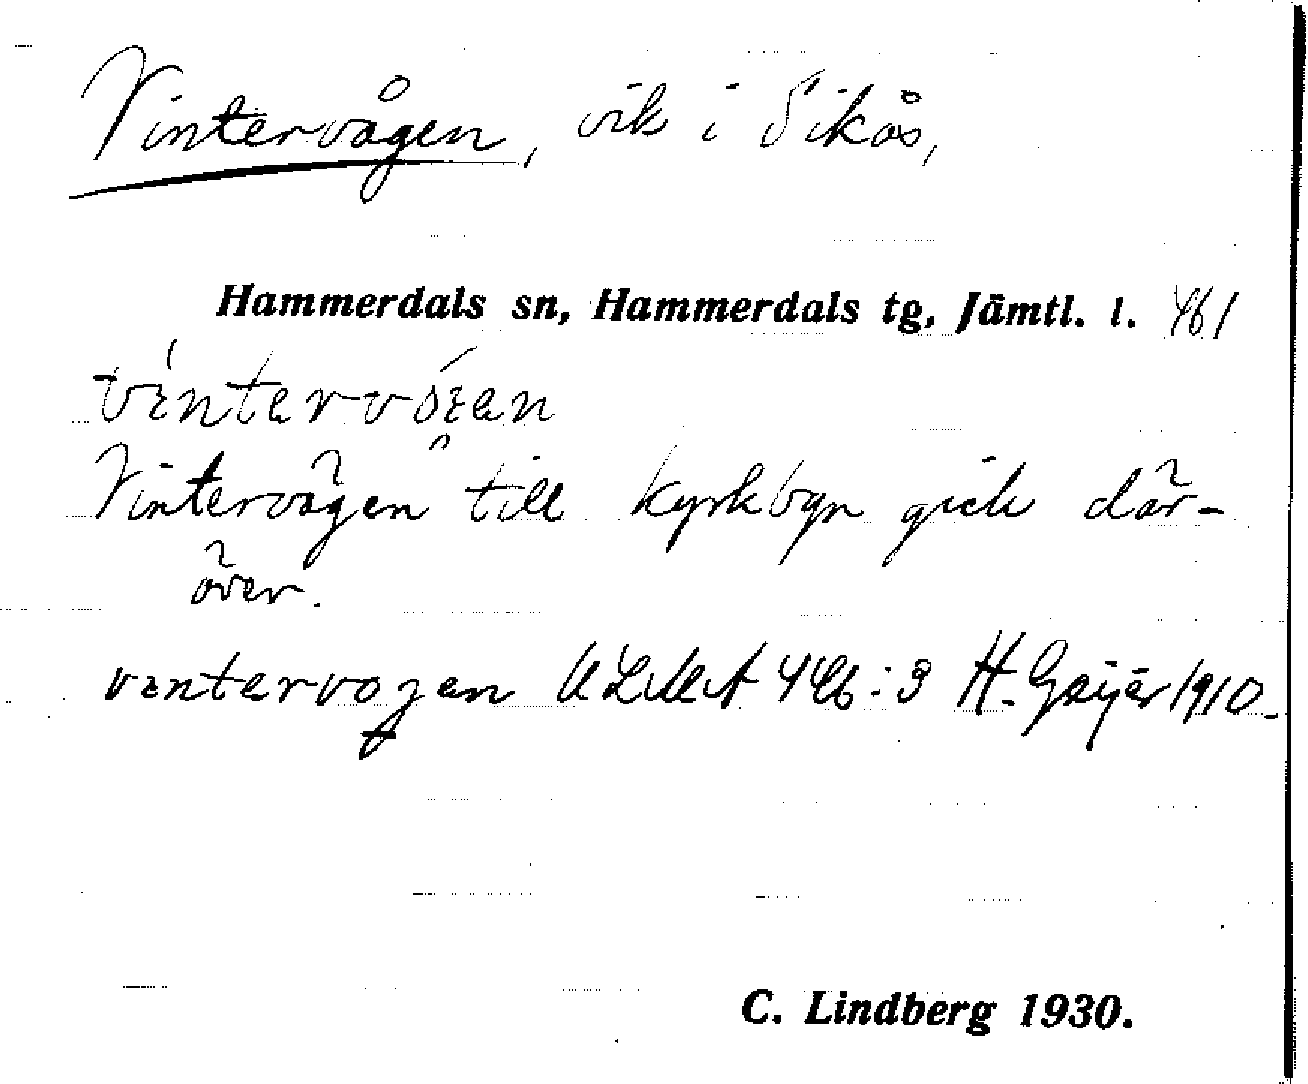 Vintervågen, vik i Sikås,
Hammerdals sn, Hammerdals tg, Jämtl. l. 461
vintervógen
Vintervägen till kyrkbyn gick där-
över.
vintervogen ULMA 446:3 H. Geijer 1910.
C. Lindberg 1930.